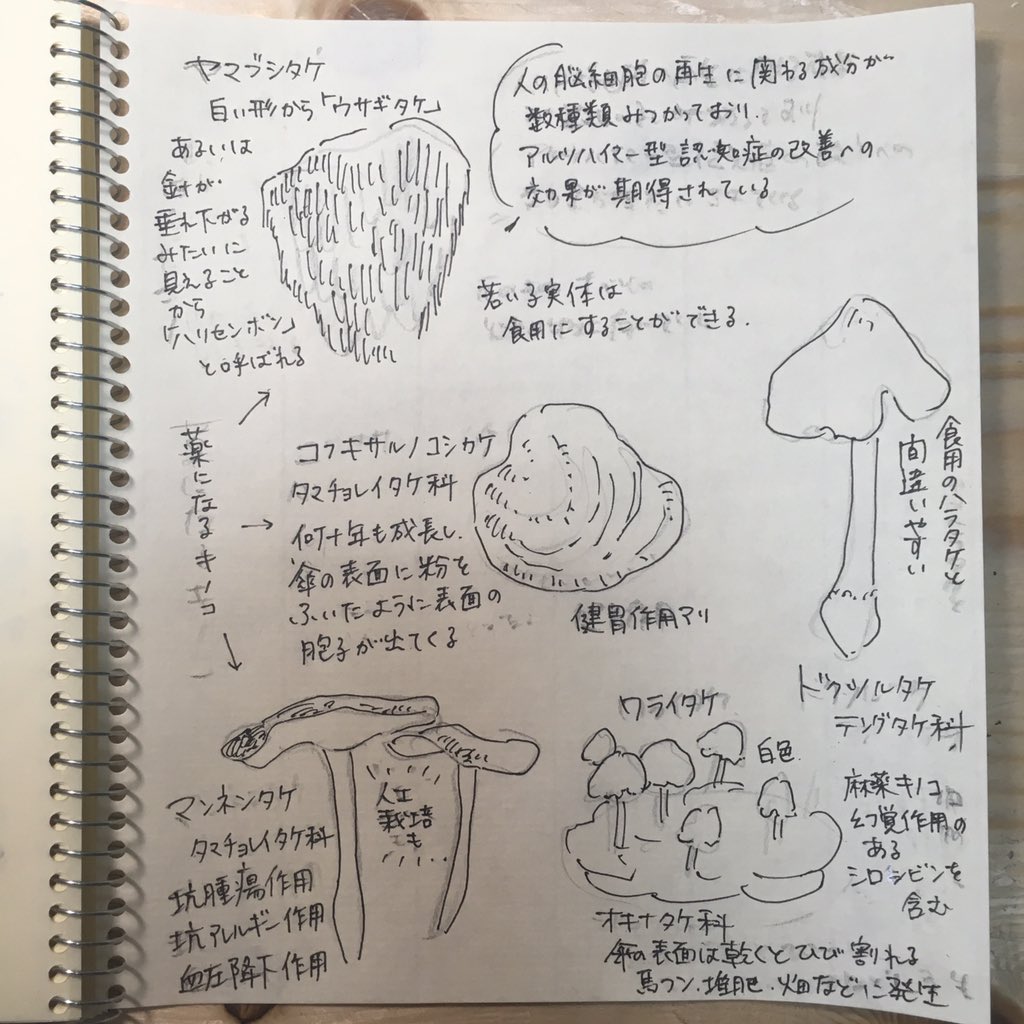 ヤマブシタケ
白い形から「ウサギタケ」
あるいは
針が
垂れ下がる
みたいに
見えること
から
「ハリセンボン」
と呼ばれる
人の脳細胞の再生に関わる成分が
数種類みつかっており、
アルツハイマー型認知症の改善への
効果が期待されている
若い子実体は
食用にすることができる.
薬になるキノコ
コフキサルノコシカケ
タマチョレイタケ科
何十年も成長し、
傘の表面に粉を
ふいたように表面の
胞子が出てくる
健胃作用アリ
食用のハラタケと
間違いやすい
ドクツルタケ
テングタケ科
マンネンタケ
タマチョレイタケ科
抗腫瘍作用
抗アレルギー作用
血圧降下作用
人工
栽培
も
ワライタケ
白色
麻薬キノコ
幻覚作用の
ある
シロシビンを
含む
オキナタケ科
傘の表面は乾くとひび割れる
馬フン、堆肥、畑などに発生